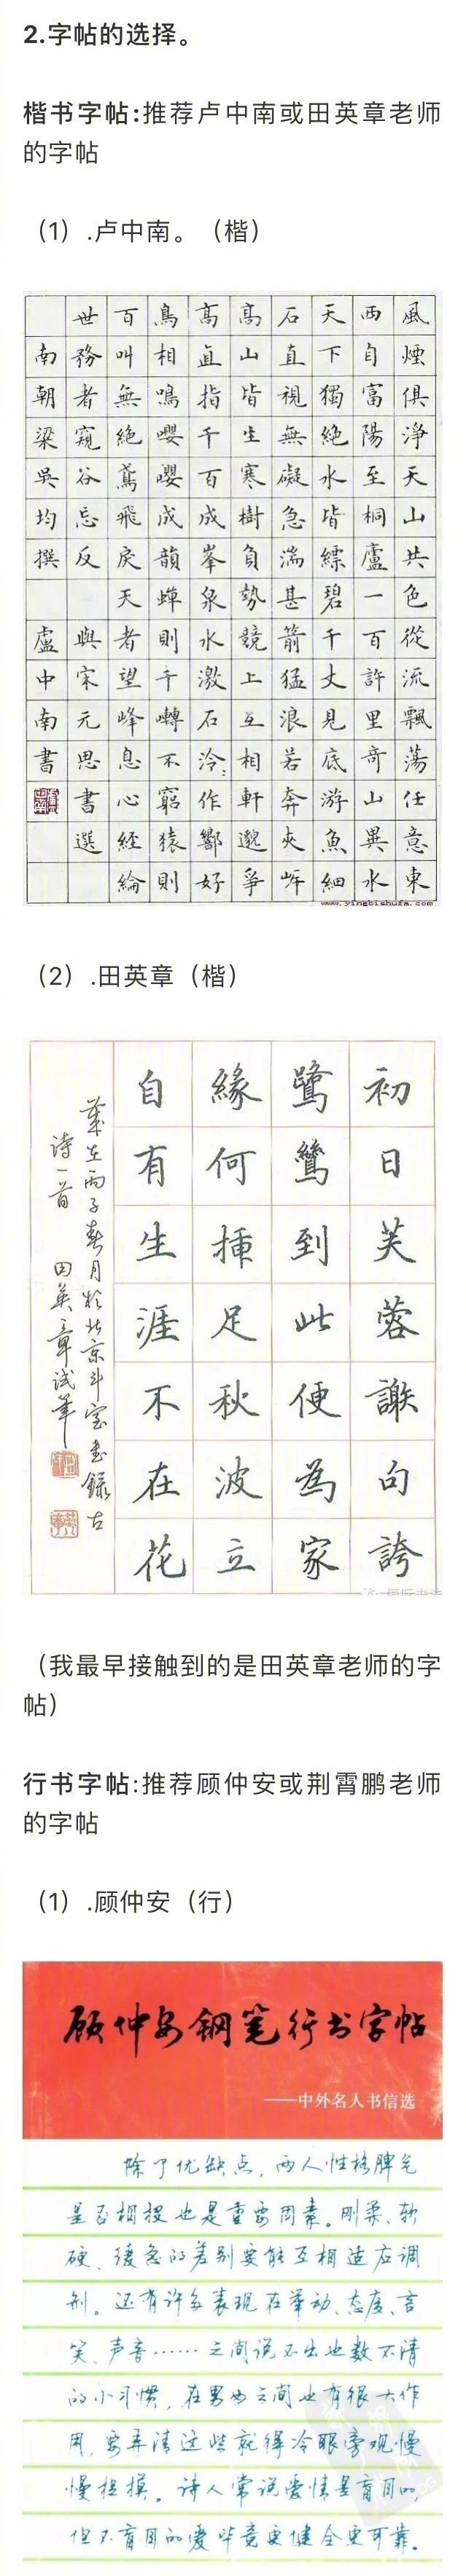 2.字帖的选择。
楷书字帖:推荐卢中南或田英章老师
的字帖
（1）.卢中南。（楷）
風煙俱淨天山共色從流飄蕩任意東
西自富陽至桐廬一百許里奇山異水
天下獨絕水皆縹碧千丈見底游魚細
石直視無礙急湍甚箭猛浪若奔夾岸
高山皆生寒樹負勢競上互相軒邈爭
高直指千百成峯泉水激石泠々作響好
鳥相鳴嚶嚶成韻蟬則千囀不窮猿則
百叫無絕鳶飛戾天者望峰息心經綸
世務者窺谷忘反 與宋元思書選
南朝梁吳均撰 盧中南書
www.yingbishufa.com
（2）.田英章（楷）
初日芙蓉謝句誇
鷺鷥到此便為家
緣何插足秋波立
自有生涯不在花
歲在丙子春月於北京斗室书錄古
诗一首 田英章试筆
（我最早接触到的是田英章老师的字
帖）
行书字帖:推荐顾仲安或荆霄鹏老师
的字帖
（1）.顾仲安（行）
顾仲安钢笔行书字帖
——中外名人书信选
除了优缺点，两人性格脾气
是否相投也是重要因素。刚柔、软
硬、缓急的差别要能互相适应调
剂。还有许多表现在举动、态度、言
笑、声音……之间说不出也数不清
的小习惯，在男女之间也有很大作
用，要弄清这些就得冷眼旁观慢
慢揣摸。诗人常说爱情是盲目的，
但不盲目的爱毕竟更健全更可靠。